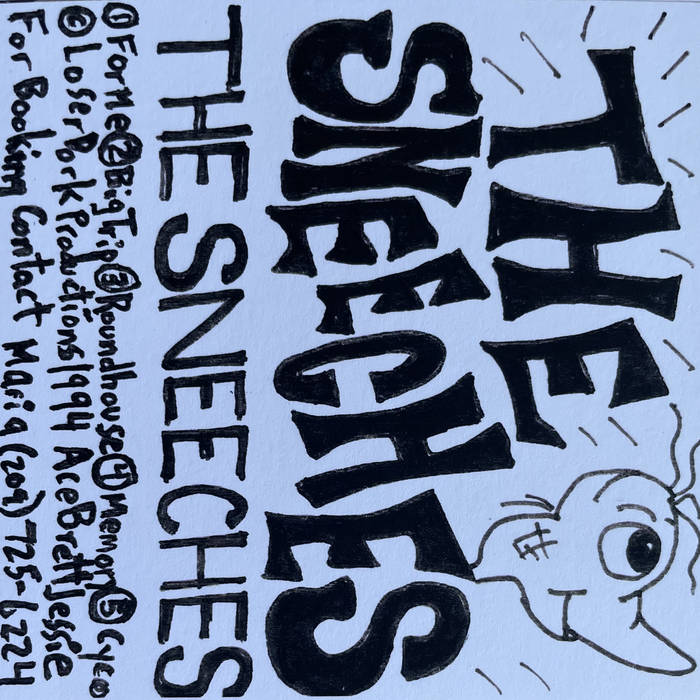 THE
SNEECHES
THE SNEECHES
①ForMe②BigTrip③Roundhouse④Memory⑤Cyco
©LoserPorkProductions1994 AceBrettJessie
For Booking Contact Maria (209)725-6224